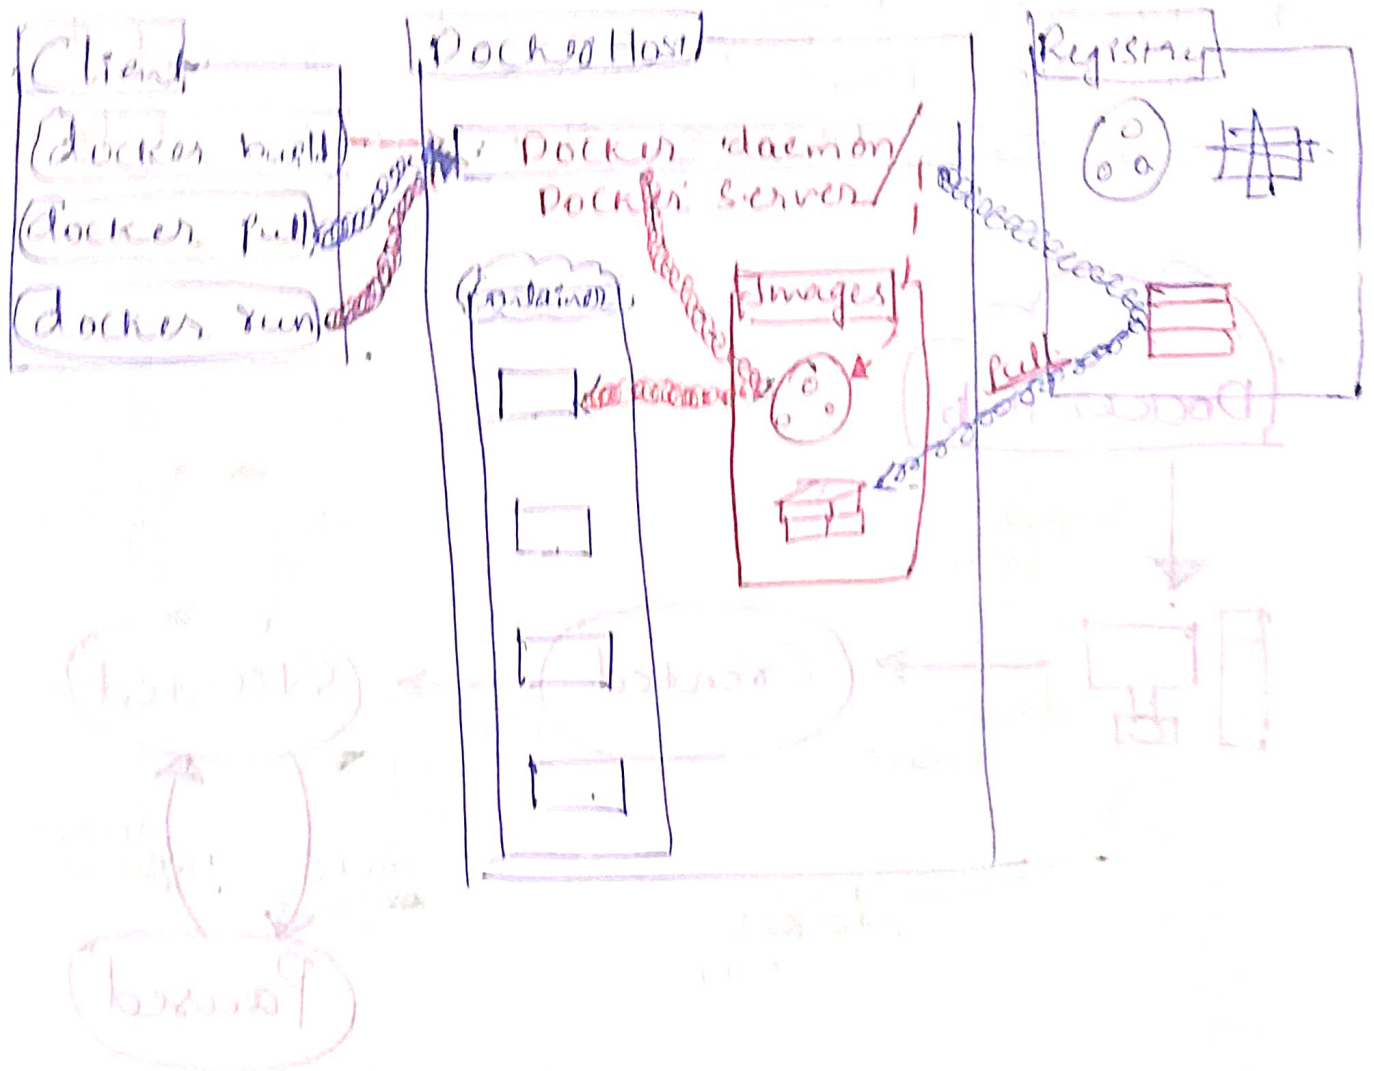 Client
docker build
docker pull
docker run
Docker Host
Docker daemon/
Docker Server/
Container
Images
Registry
Pull
Created
Started
Paused